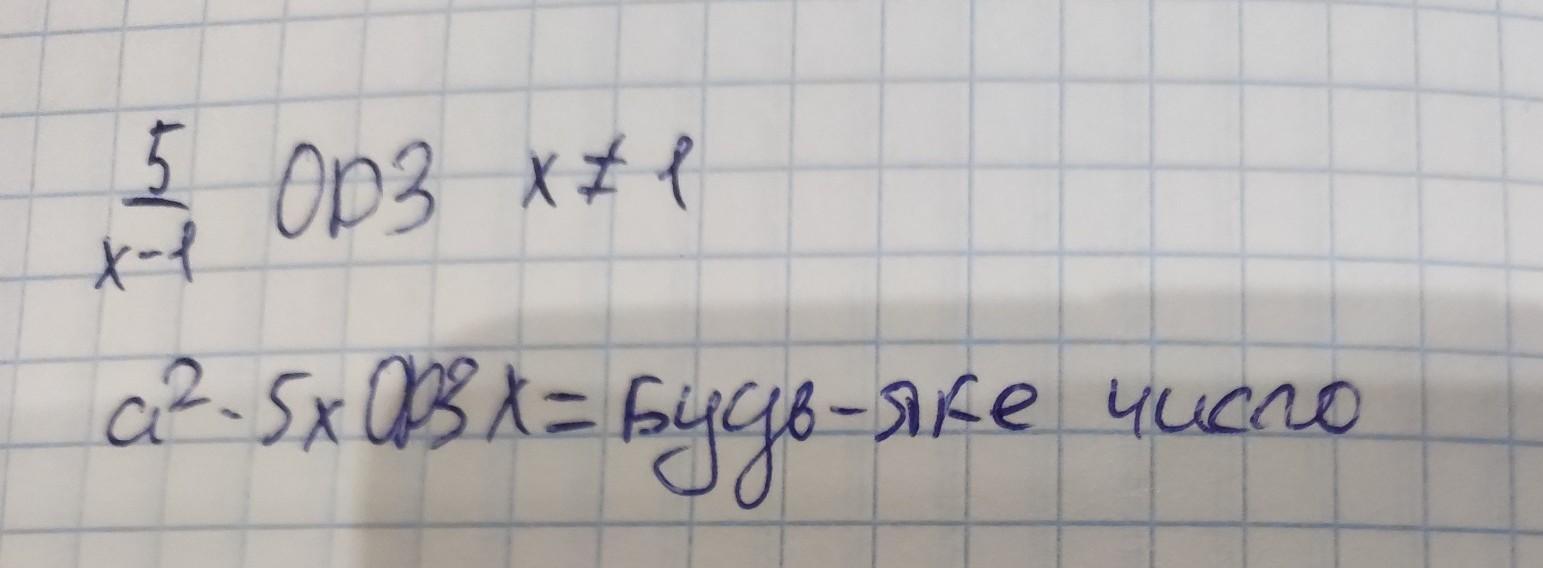 5/x-1 ОДЗ x ≠ 1
a² - 5x ОДЗ x = Будь-яке число